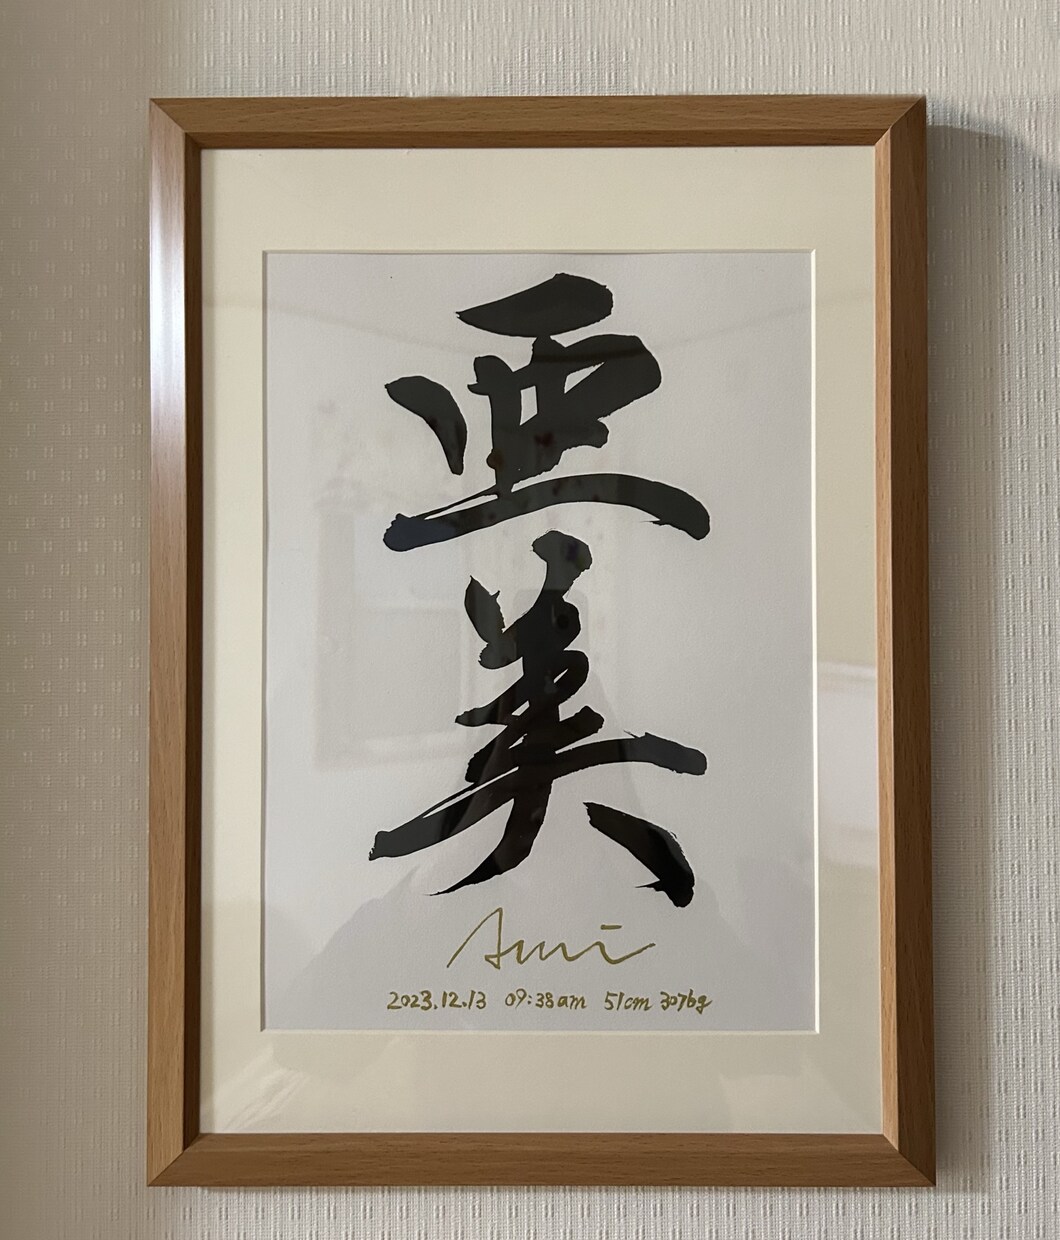 亜
美
Ami
2023.12.13 09:38am 51cm 3076g